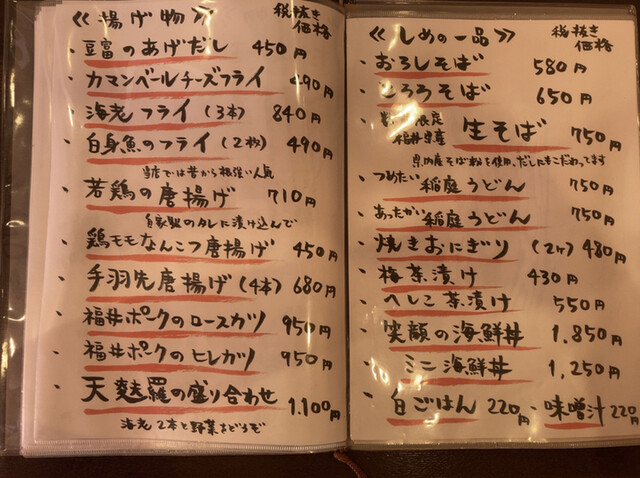 ≪揚げ物≫ 税抜き価格
・豆富のあげだし 450円
・カマンベールチーズフライ 490円
・海老フライ(3本) 840円
・白身魚のフライ(2枚) 490円
当店では昔から根強い人気
・若鶏の唐揚げ 710円
自家製のタレに漬け込んで
・鶏モモなんこつ唐揚げ 450円
・手羽先唐揚げ(4本) 680円
・福井ポークのロースカツ 950円
・福井ポークのヒレカツ 950円
・天麩羅の盛り合わせ 1.100円
海老2本と野菜などうぞ
≪しめの一品≫ 税抜き価格
・おろしそば 580円
・とろろそば 650円
・限定 福井県産 生そば 750円
県内産そば粉を使用、だしにもこだわってます
・つめたい稲庭うどん 750円
・あったかい稲庭うどん 750円
・焼きおにぎり(2ヶ) 480円
・梅茶漬け 430円
・へしこ茶漬け 550円
・笑顔の海鮮丼 1.850円
・ミニ海鮮丼 1,250円
・白ごはん 220円 ・味噌汁 220円